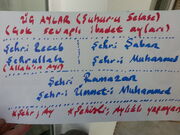 ÜÇ AYLAR (Şuhur-u Selase)
(Çok sevaplı ibadet ayları)
Şehri: Receb
Şehrullah
(Allah'ın Ayı)
Şehri: Şaban
Şehri: Muhammed
Şehri: Ramazan
Şehri: Ümmeti: Muhammed
*Şehr: Ay